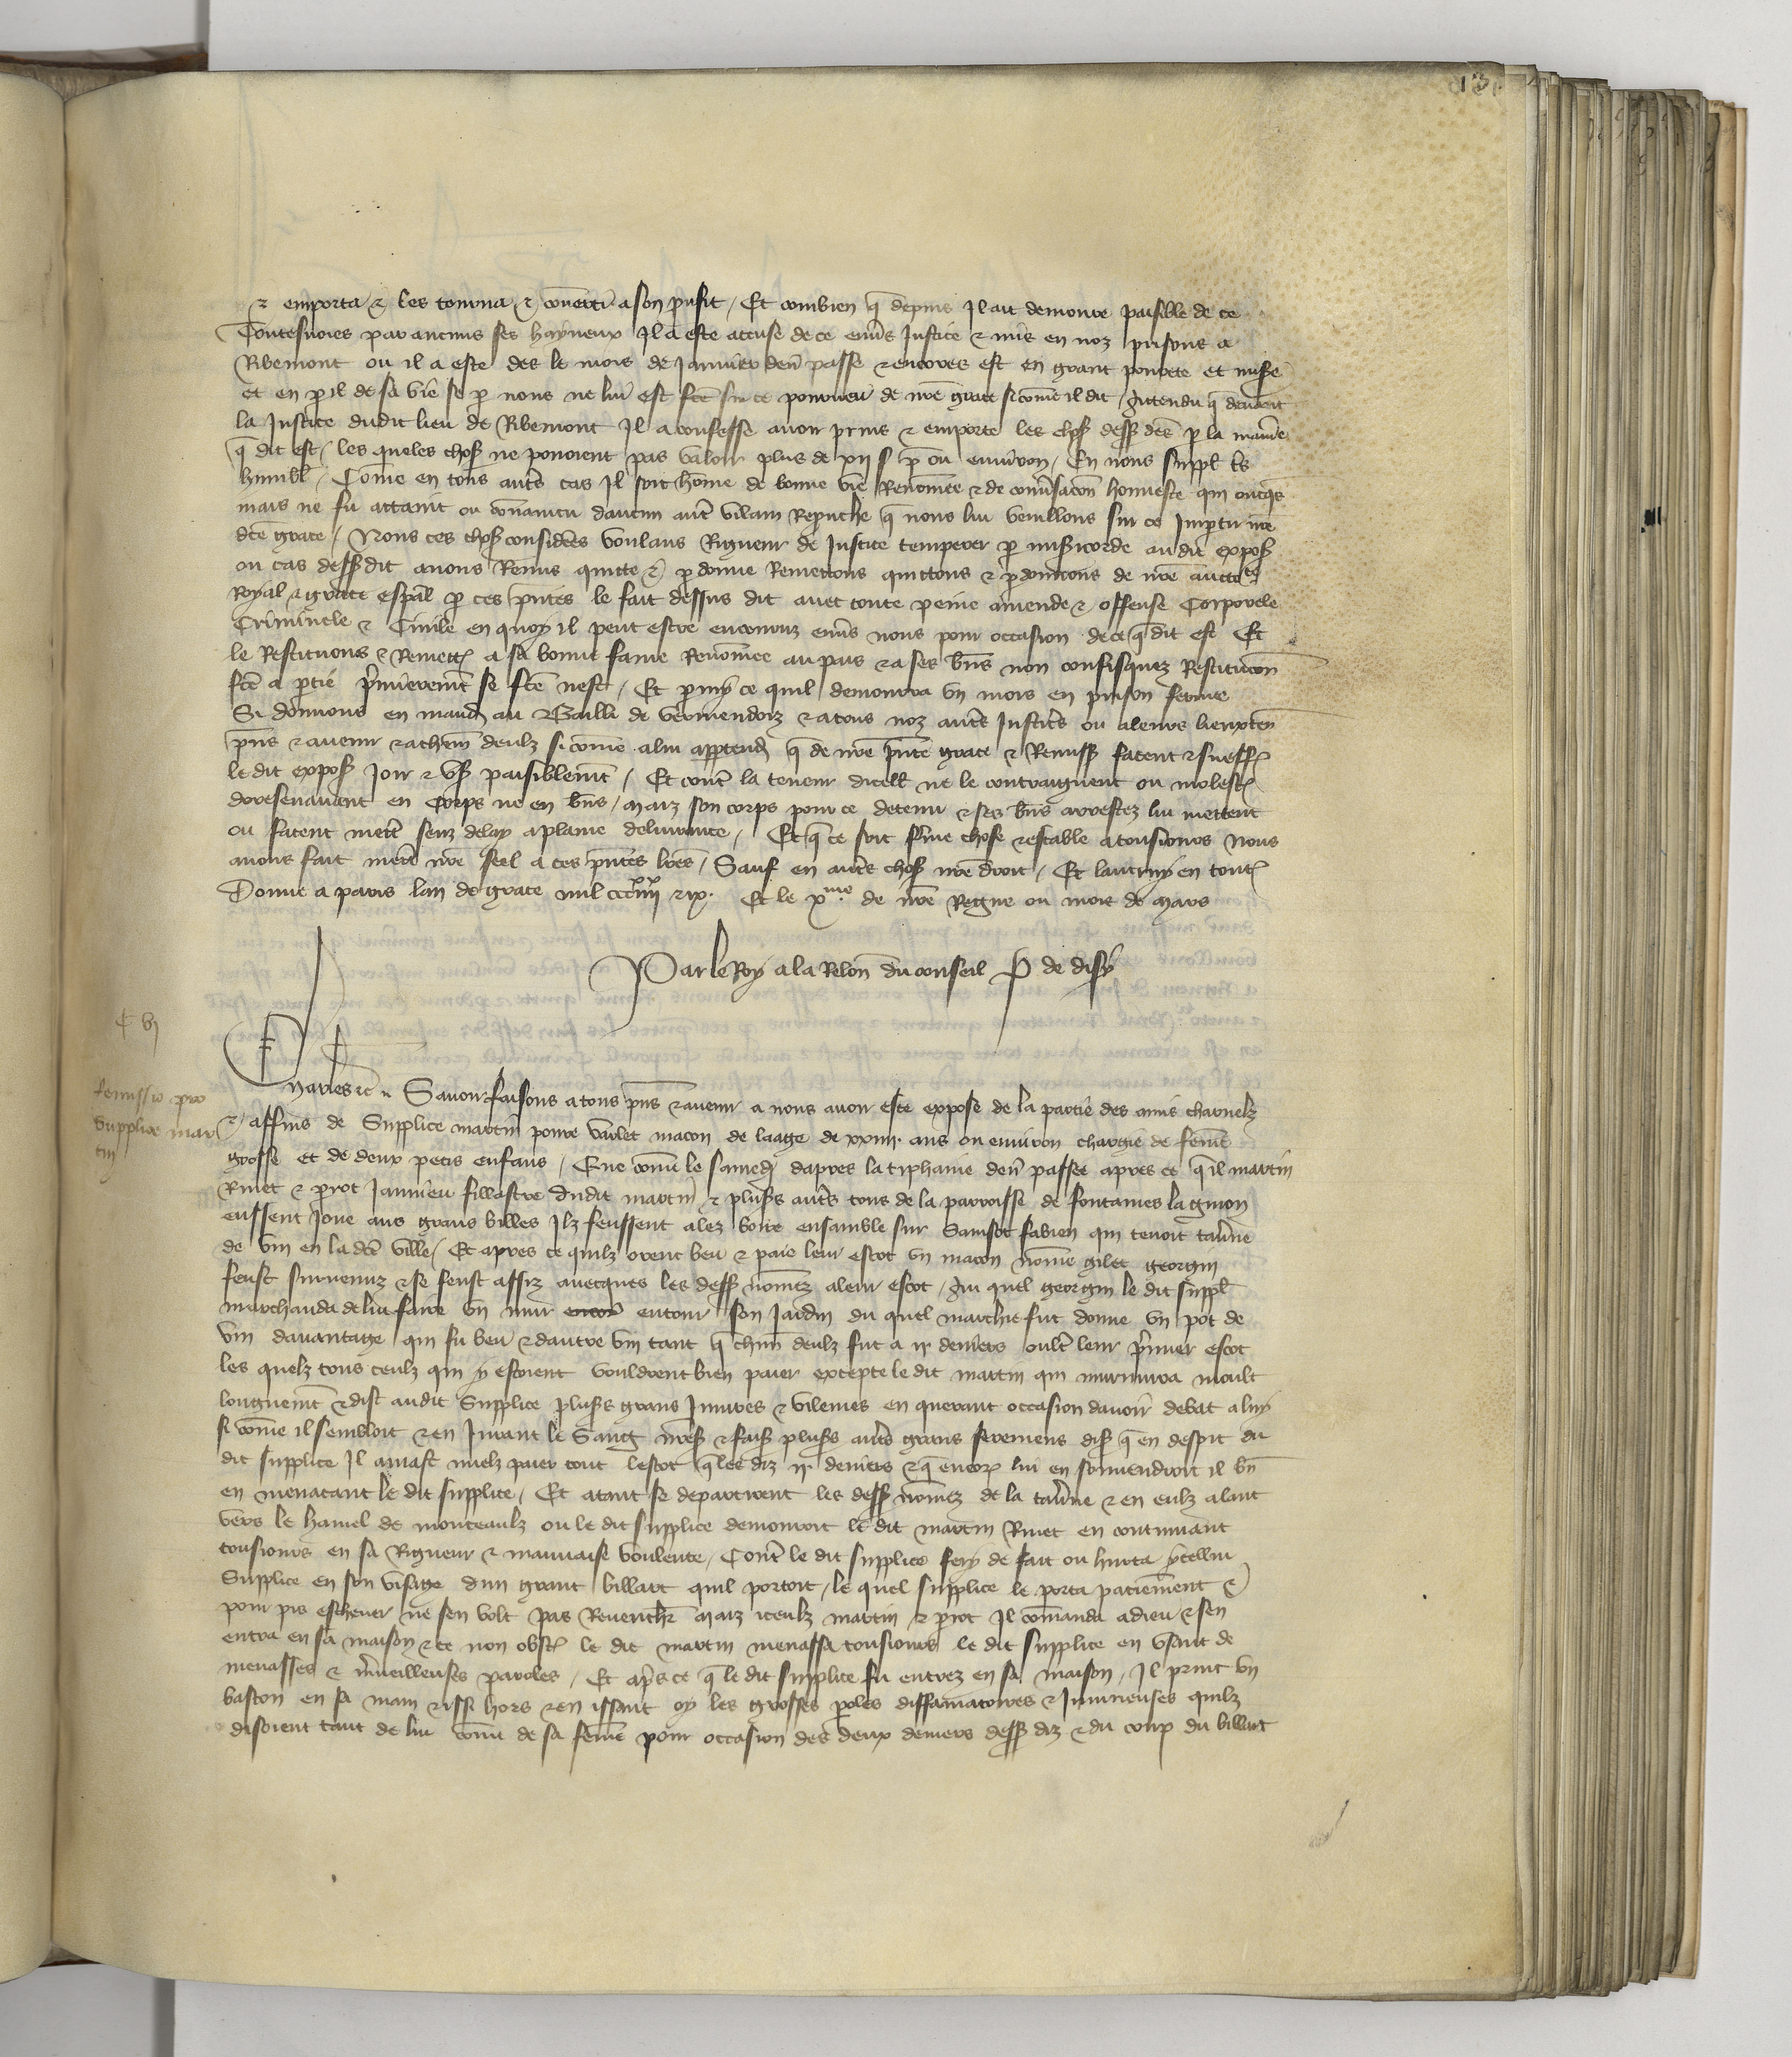 131
et emporta et les tourna et converti a son prufit / Et combien q̃ depuis Il ait demoure paisible de ce
Toutesvoies par aucuns ses hayneux Il a este accuse de ce env̄s Justice et mis en noz prisons a
Ribemont ou il a este des le mois de Januier den̄ passe et encores est en grant pourete et mis̄e
et en p̱il de sa vie se p̱ nous ne lui est sur ce pourueu de n̄re grace si cōme il dit / Attendu q̃ deuant
la Justice dudit lieu de Ribemont Il a confesse auoir prins et emporte les chos̄ dess̄ d̄ces p̱ la maniē
q̃ dit est / les queles chos̄ ne pouoient pas valoir plus de xij s p̱ ou enuiron / En nous suppl̄
humbl̄ / Cōme en tous aut̄s cas Il soit hōme de bonne vie Renōmee et de conūsacōn honneste qui oncq̄s
mais ne fu attaint ou conuaincu daucun aut̄ vilain Reprouche q̃ nous lui vueillons sur ce Imp̱tir n̄re
d̄ce grace / Nous ces chos̄ considēes voulans Rigueur de Justice temperer p̱ mis̄icorde au dit expos̄
ou cas dess̄dit auons Remis quicte et p̱donne Remettons quittons et p̱donnons de n̄re auctoᵗᵉ
Royal et grace esp̄al p̱ ces p̄ntes le fait dessus dit auec toute peine amende et offense Corporele
Criminele et Ciuile en quoy il peut estre encouruz env̄s nous pour occasion de ce q̃ dit est Et
le Restituons et Remett̄ a sa bonne fame Renōmee au pais et a ses b̄ns non confisquez Restitucōn
f̄ce a p̱tie p̱mierem̄t se f̄ce nest / Et p̱my ce quil demourra vn mois en prison fermee
Si donnons en mand̄ au Bailli de vermendoiz et a tous noz aut̄s Justic̄s ou a leurs lieuxten̄
p̄ns et auenir et a ch̄un deulz si cōme a lui app̱tend̄ q̃ de n̄re p̄nte grace et Remiss̄ facent et sueff̄
le dit expos̄ Joir et vs̄ paisiblem̄t / Et cont̄ la teneur dicell̄ ne le contraignent ou molest̄
doresenauant en corps ne en b̄ns / maiz son corps pour ce detenu et ses b̄ns arrestez lui mettent
ou facent mett̄ senz delay a plaine deliurance / Et q̃ ce soit ferme chose et estable a tousiours Nous
auons fait mett̄ n̄re seel a ces p̄ntes l̄res / Sauf en aut̄s chos̄ n̄re droit / Et lautruy en tout̄
Donne a paris lan de grace mil ccciiijˣˣ et ix. Et le xᵐᵉ de n̄re Regne ou mois de mars
Par le Roy a la Relōn du conseil P de disy
C vj
Remissio pro
Supplice mar
tin
Charles etc. Sauoir faisons a tous p̄ns et auenir a nous auoir este expose de la partie des amis charnelz
et affins de Supplice martin poure varlet macon de laage de xxiiij ans ou enuiron chargie de fēme
grosse et de deux petis enfans / Que cōme le samed̄ dapres la tiphanie den̄ passee apres ce q̃ il martin
Rivet et p̱rot Jannieu fillastre dudit martin et plus̄s aut̄s tous de la parroisse de fontaines la guion
eussent Joue aus grans billes Ilz feussent alez boire ensamble sur Samsot fabien qui tenoit tau̱ne
de vin en la d̄ce ville / Et apres ce quilz orent beu et paie leur escot vn macon nōme gilet georgin
feust suruenuz et se feust assiz auecques les dess̄ nōmez a leur escot / Au quel georgin le dit suppl̄
marchanda de lui faire vn mur entour son Jardin du quel marchie fut donne vn pot de
vin dauantage qui fu beu et dautre vin tant q̃ ch̄un deulz fut a ij deniers oult̄ leur p̱mier escot
les quelz tous ceulz qui y estoient vouldrent bien paier excepte le dit martin qui murmura moult
longuem̄t et dist au dit Supplice plus̄s grans Iniures et vilenies en querant occasion dauoir debat a luy
si cōme il sembloit et en Jurant le sang n̄res̄ et fais̄ plus̄s aut̄s grans seremens dis̄ q̃ en despit du
dit supplice Il amast mielz paier tout lescot q̃ les diz ij deniers et q̃ encor̄ lui en souuendroit il b̄n
en menacant le dit supplice / Et atant se departirent les dess̄ nōmez de la tau̱ne et en eulz alant
vers le hamel de monceaulz ou le dit supplice demouroit le dit martin Rivet en continuant
tousiours en sa Rigueur et mauuaise voulente / Cont̄ le dit supplice fery de fait ou hurta ycellui
Supplice en son visage dun grant billart quil portoit / le quel supplice le porta paciēment et
pour pis escheuer ne sen volt pas Reuench̄ maiz iceulz martin et p̱rot Il cōmanda a dieu et sen
entra en sa maison et ce non obst̄ le dit martin menassa tousiours le dit supplice en vsant de
menasses et m̱ueilleuses paroles / Et ap̄s ce q̃ le dit supplice fu entrez en sa maison / Il print vn
baston en sa main et issi hors et en issant oy les grosses p̱oles diffamatoires et Iniurieuses quilz
disoient tant de lui cōme de sa fēme pour occasion des deux deniers dess̄ diz et du coup du billart